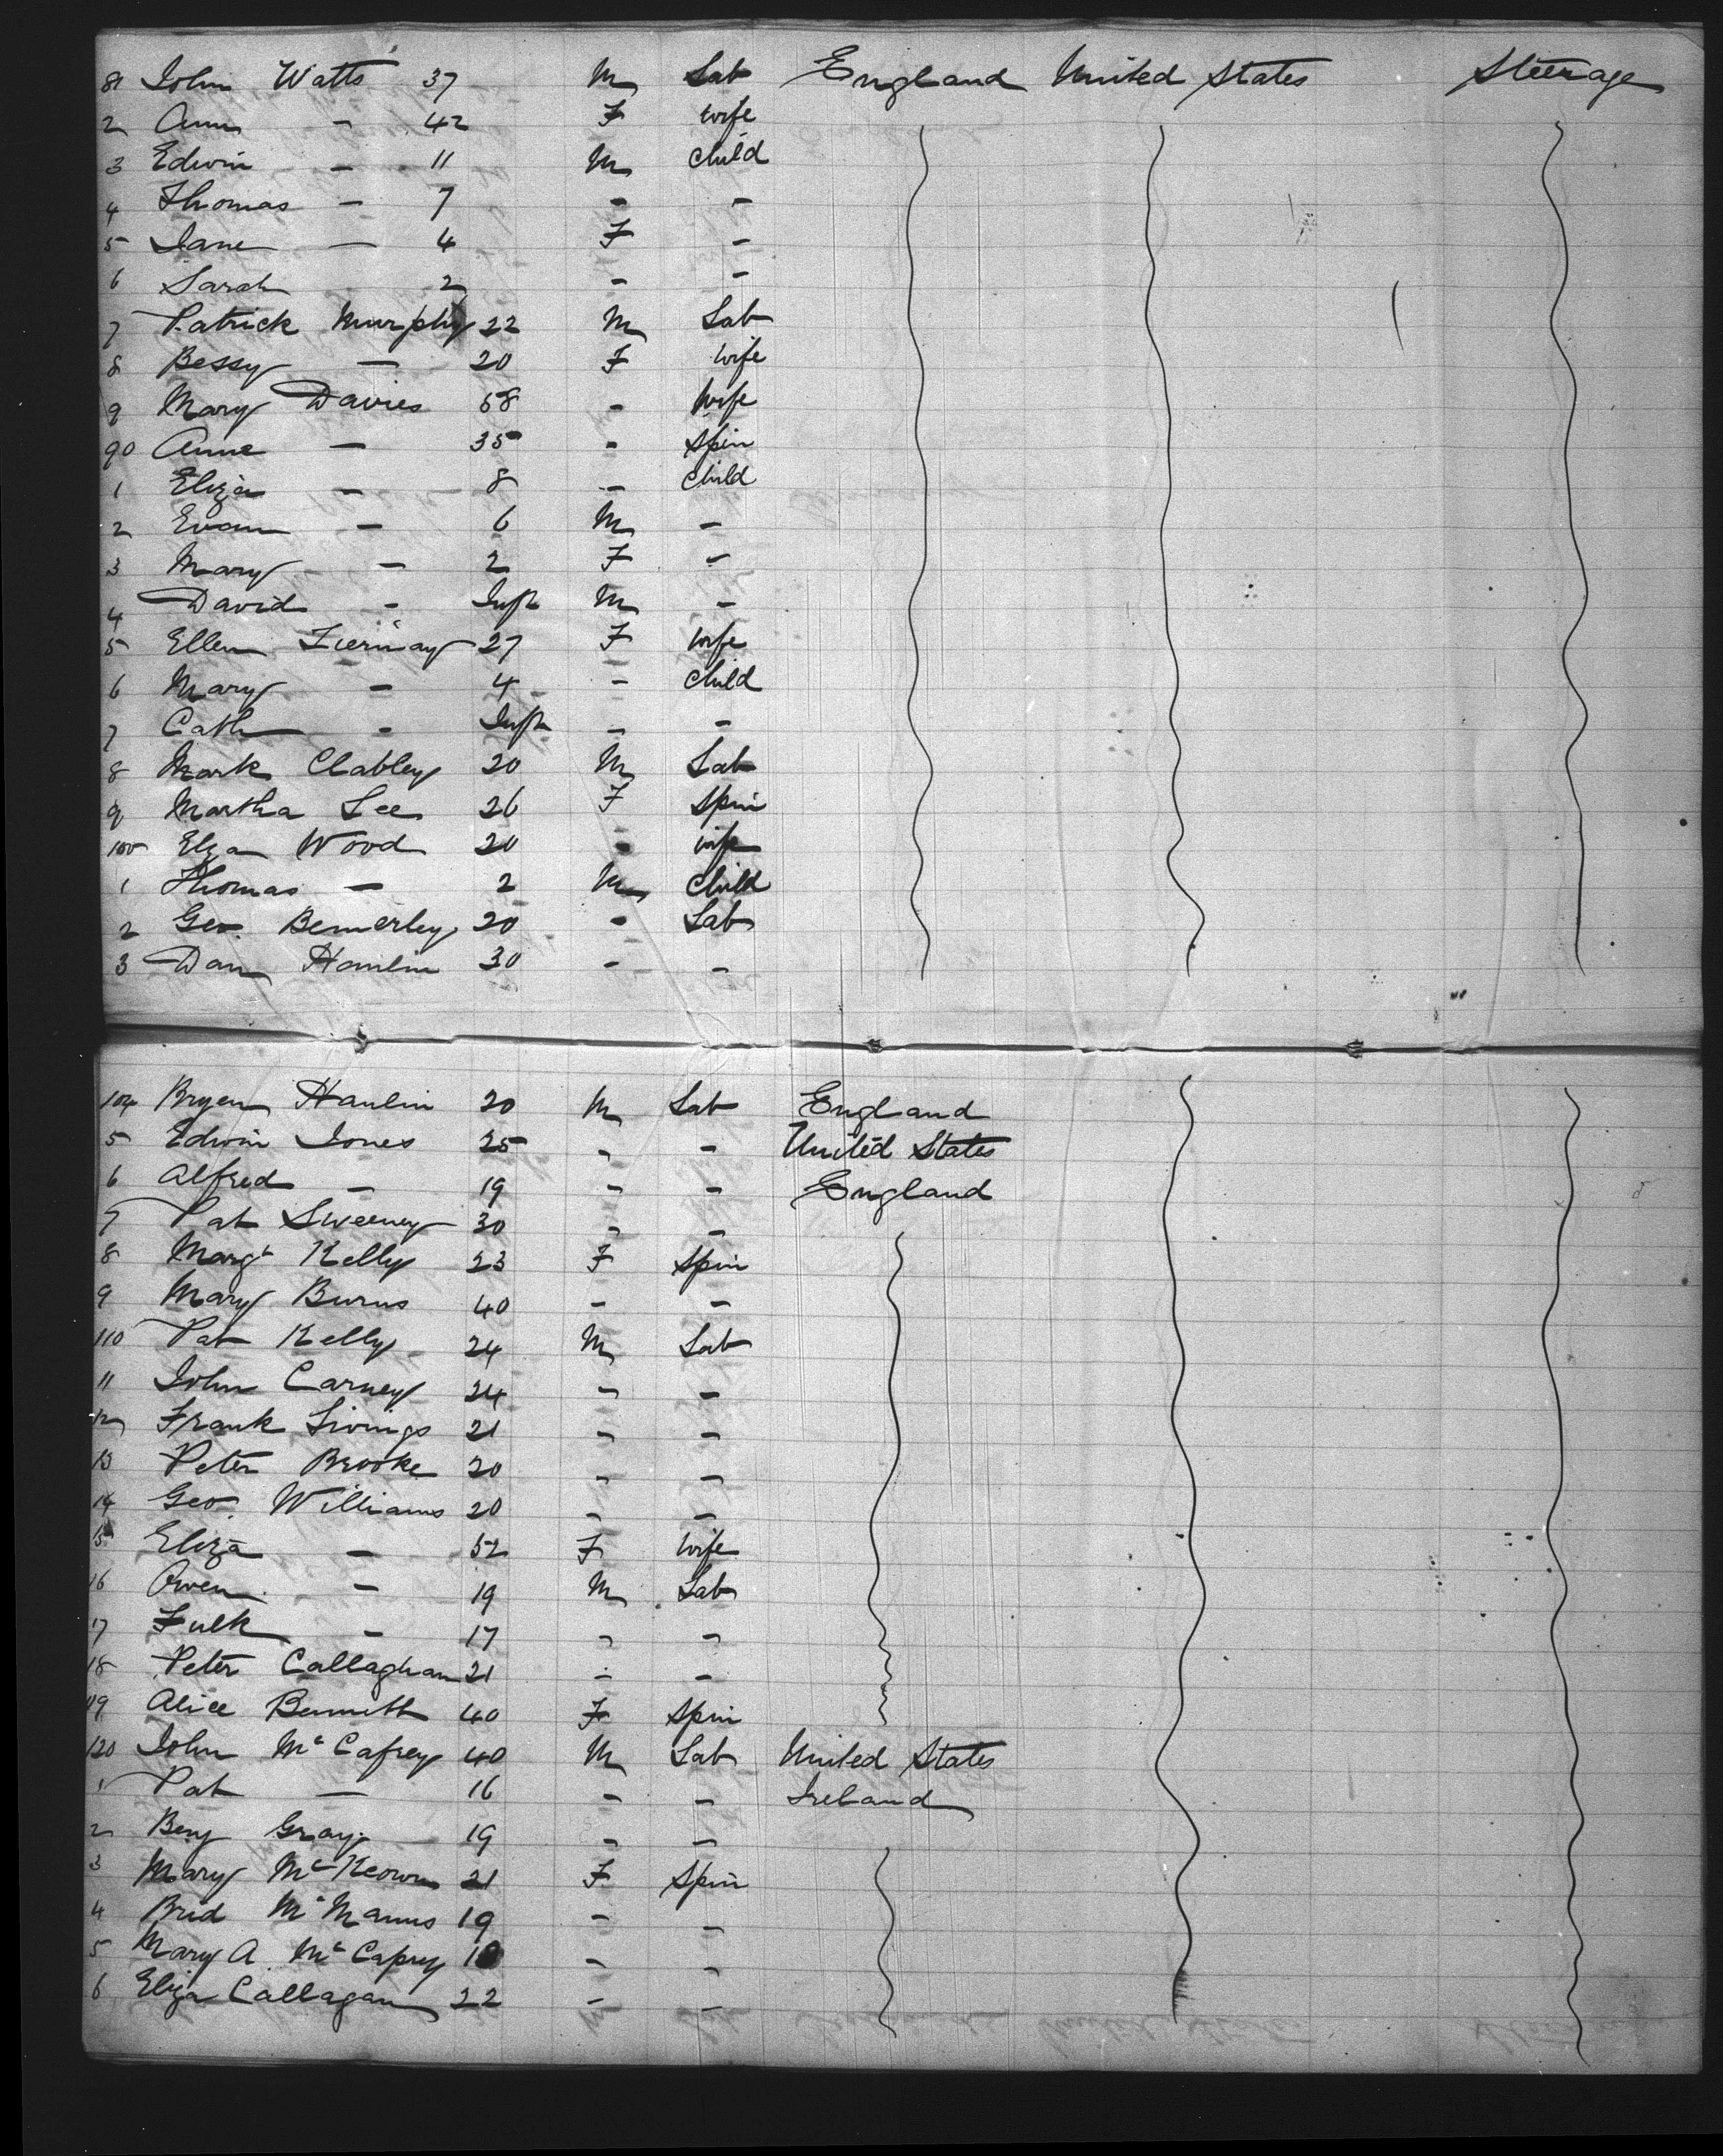 81 John Watts 37 M Lab England United States Steerage
2 Ann - 42 F wife
3 Edwin - 11 M child
4 Thomas - 7 - -
5 Jane - 4 F -
6 Sarah 2 - -
7 Patrick Murphy 22 M Lab
8 Bessy - 20 F wife
9 Mary Davies 58 - wife
90 Anne - 35 - Spin
1 Eliza - 8 - child
2 Evan - 6 M -
3 Mary - 2 F -
4 David - Inft M -
5 Ellen Tiernay 27 F wife
6 Mary - 4 - child
7 Cath - Inft - -
8 Mark Clabley 20 M Lab
9 Martha Lee 26 F Spin
100 Elza Wood 20 - wife
1 Thomas - 2 M child
2 Geo. Bemerley 20 - Lab
3 Dan Hanlin 30 - -
104 Bryen Hanlin 20 M Lab England
5 Edwin Jones 25 - - United States
6 Alfred - 19 - - England
7 Pat Sweeney 30 - -
8 Margt Kelly 23 F Spin
9 Mary Burns 40 - -
110 Pat Kelly 24 M Lab
11 John Carney 24 - -
12 Frank Livings 21 - -
13 Peter Brooke 20 - -
14 Geo. Williams 20 - -
15 Eliza - 52 F wife
16 Owen - 19 M Lab
17 Fulk - 17 - -
18 Peter Callaghan 21 - -
119 Alice Bennett 40 F Spin
120 John Mc Cafrey 40 M Lab United States
1 Pat - 16 - - Ireland
2 Benj Gray 19 - -
3 Mary Mc Keown 21 F Spin
4 Brid Mc Manus 19 - -
5 Mary A. Mc Caprey - -
6 Eliza Callagan 22 - -